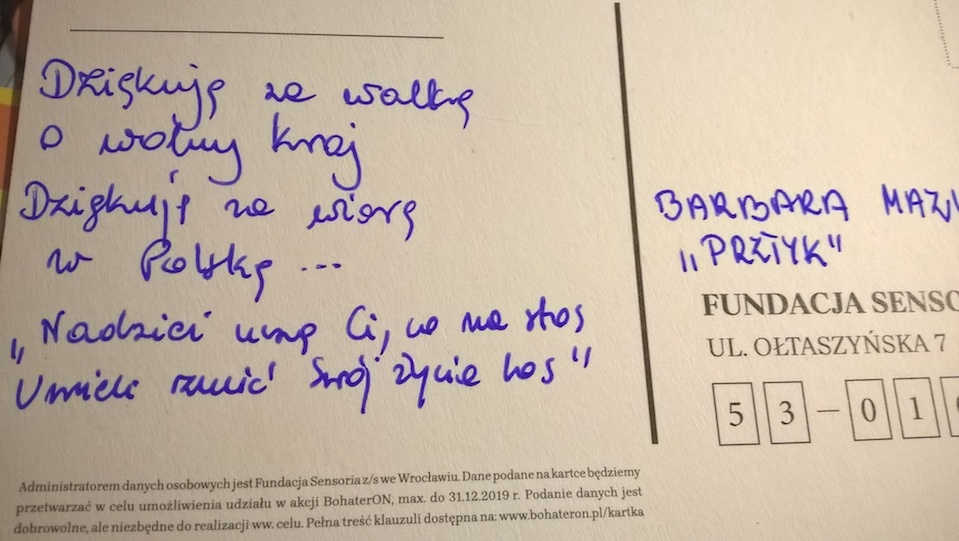 Dziękuję za walkę
o wolny kraj
Dziękuję za wiarę
w Polskę ...
„Nadziei uczą Ci, co na stos
Umieli rzucić swój życia los"
BARBARA
„PRZTYK"
FUNDACJA SENSO
UL. OŁTASZYŃSKA 7
53-01
Administratorem danych osobowych jest Fundacja Sensoria z/s we Wrocławiu. Dane podane na kartce będziemy
przetwarzać w celu umożliwienia udziału w akcji BohaterON, max. do 31.12.2019 r. Podanie danych jest
dobrowolne, ale niezbędne do realizacji ww. celu. Pełna treść klauzuli dostępna na: www.bohateron.pl/kartka